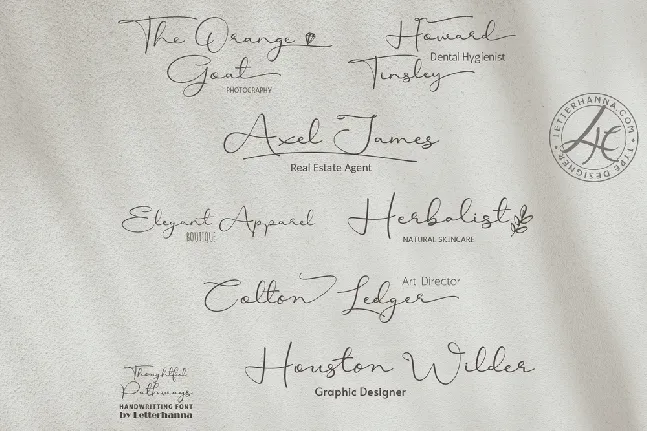 The Orange
Goat
PHOTOGRAPHY
Howard
Dental Hygienist
Tinsley
Axel James
Real Estate Agent
LETTERHANNA.COM
LH
TYPE DESIGNER
Elegant Apparel
BOUTIQUE
Herbalist
NATURAL SKINCARE
Art Director
Colton Ledger
Houston Wilder
Graphic Designer
Thoughtful
Pathways
HANDWRITTING FONT
by Letterhanna